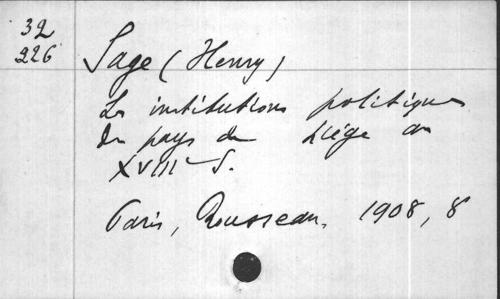 32
226
Sage (Henry)
Les institutions politiques
du pays de Liège au
XVIIIe S.
Paris, Rousseau, 1908, 8